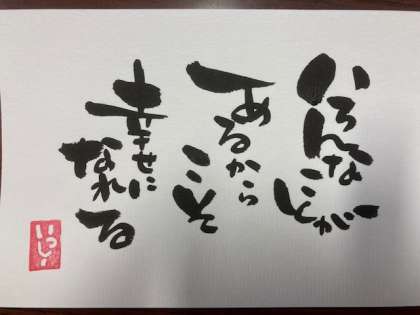 いろんなことが
あるからこそ
幸せに
なれる
いっしー